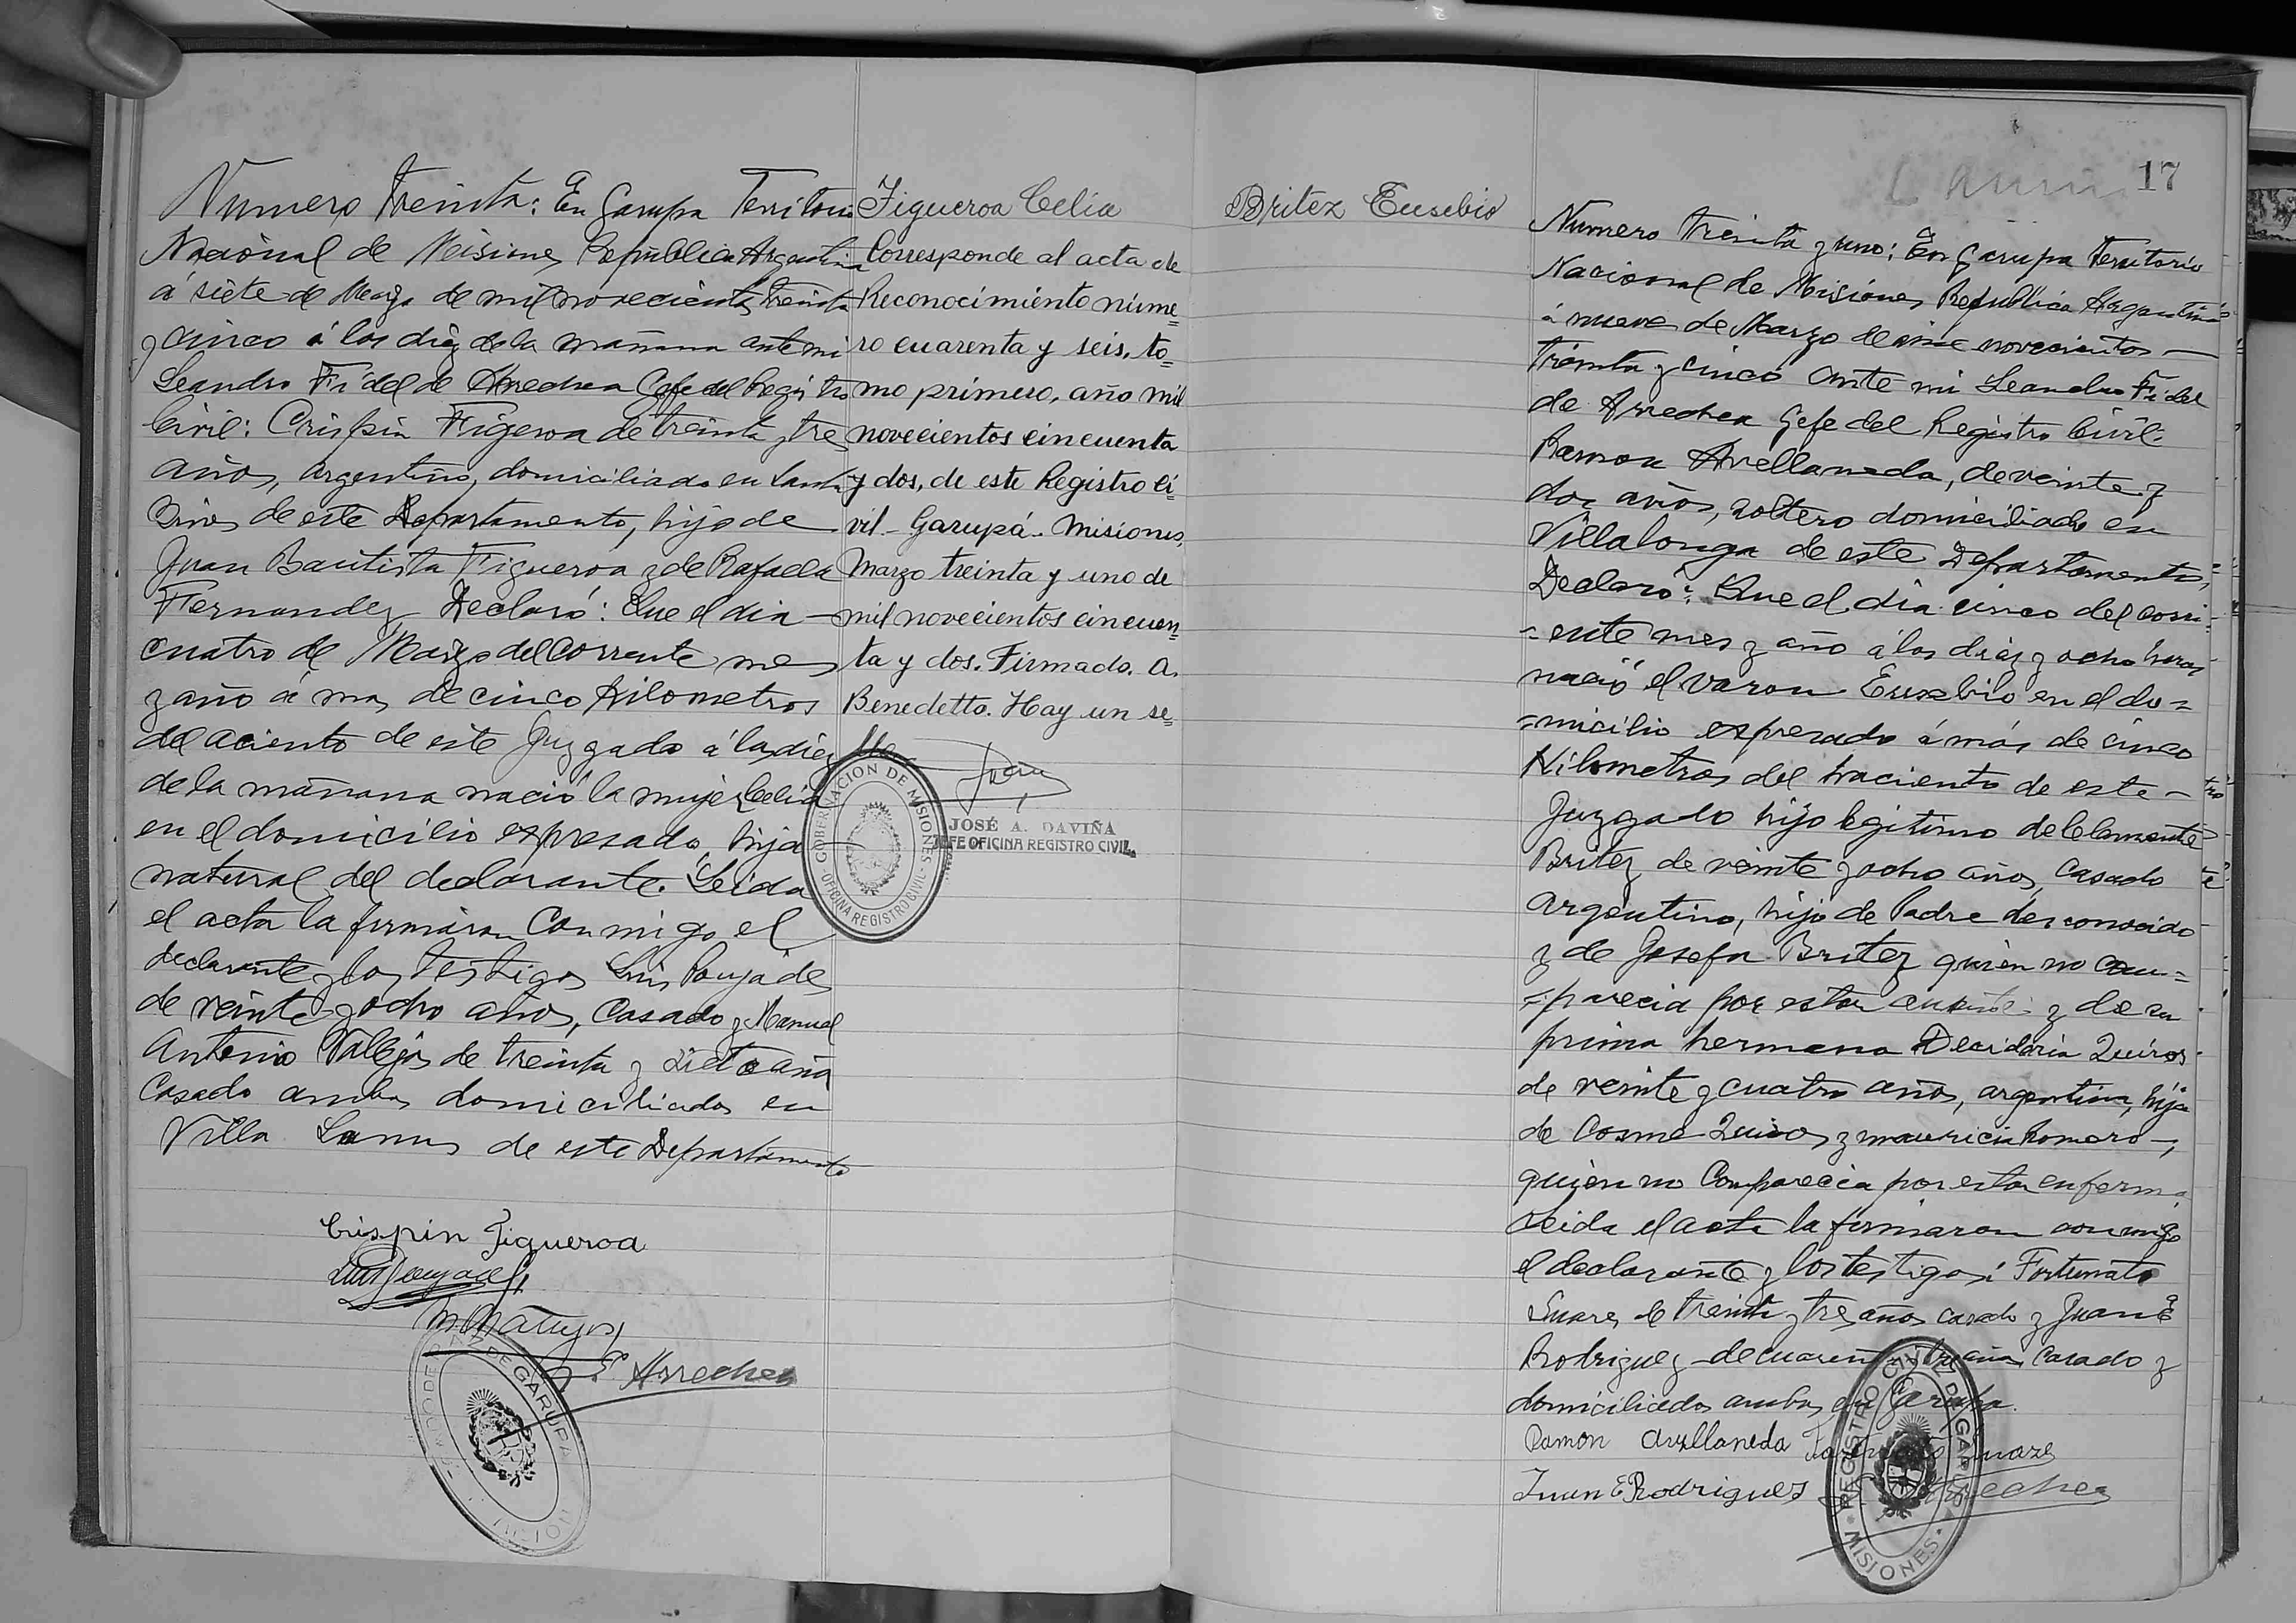 Numero treinta: En Garupa Territorio
Nacional de Misiones Republica Argentina
á siete de Marzo de mil novecientos treinta
y cinco á las diez de la mañana ante mi
Leandro Fidel de Arrechea Gefe del Registro
Civil: Crispin Figeroa de treinta y tres
años, argentino, domiciliado en
de este Departamento, hijo de
Juan Bautista Figueroa y de Rafaela
Fernandez Declaró: Que el dia
cuatro de Marzo del corrente mes
y año á mas de cinco Kilometros
del aciento de este Juzgado á las diez
de la mañana nació la mujer Celia
en el domicilio espresado, hija
natural del declarante. Leida
el acta la firmaron conmigo el
declarante y los testigos Luis Poujade
de veinte y ocho años, casado y Manuel
Antonio Vallejos de treinta y siete años
casado ambos domiciliados en
Villa Lanus de este Departamento
Crispin Figueroa
Arrechea
DE GARUPA
Figueroa Celia
Corresponde al acta de
Reconocimiento núme=
ro cuarenta y seis, to=
mo primero, año mil
novecientos cincuenta
y dos, de este Registro Ci=
vil - Garupá - Misiones,
Marzo treinta y uno de
mil novecientos cincuen=
ta y dos. Firmado. A.
Benedetto. Hay un se=
llo
GOBERNACION DE MISIONES
OFICINA REGISTRO CIVIL
JOSÉ A. DAVIÑA
JEFE OFICINA REGISTRO CIVIL
Britez Eusebio
17
Numero treinta y uno: En Garupa Territorio
Nacional de Misiones Republica Argentina
á nueve de Marzo de mil novecientos
treinta y cinco ante mi Leandro Fidel
de Arrechea Gefe del Registro Civil:
Ramon Avellaneda, de veinte y
dos años, soltero domiciliado en
Villalonga de este Departamento,
Declaró: Que el dia cinco del corri=
=ente mes y año á las diez y ocho horas
nació el varon Eusebio en el do=
=micilio espresado á más de cinco
Kilometros del haciento de este
Juzgado hijo legitimo de Clemente
Britez de veinte y ocho años, casado
argentino, hijo de Padre desconocido
y de Josefa Britez quien no com=
=parecia por estar ausente y de su
prima hermana Decideria Quiros
de veinte y cuatro años, argentina, hija
de Cosme Quiros y mauricia Romero,
quien no Comparecia por estar enferma
Leida el acta la firmaron conmigo
el declarante y los testigos: Fortunato
Suares de treinta y tres años casado y Juan E
Rodriguez de cuarenta y tres años casado y
domiciliados ambos en Garupa.
Ramon Avellaneda Fortunato Suarez
Juan E Rodrigues Arrechea
REGISTRO CIVIL DE GARUPA
MISIONES